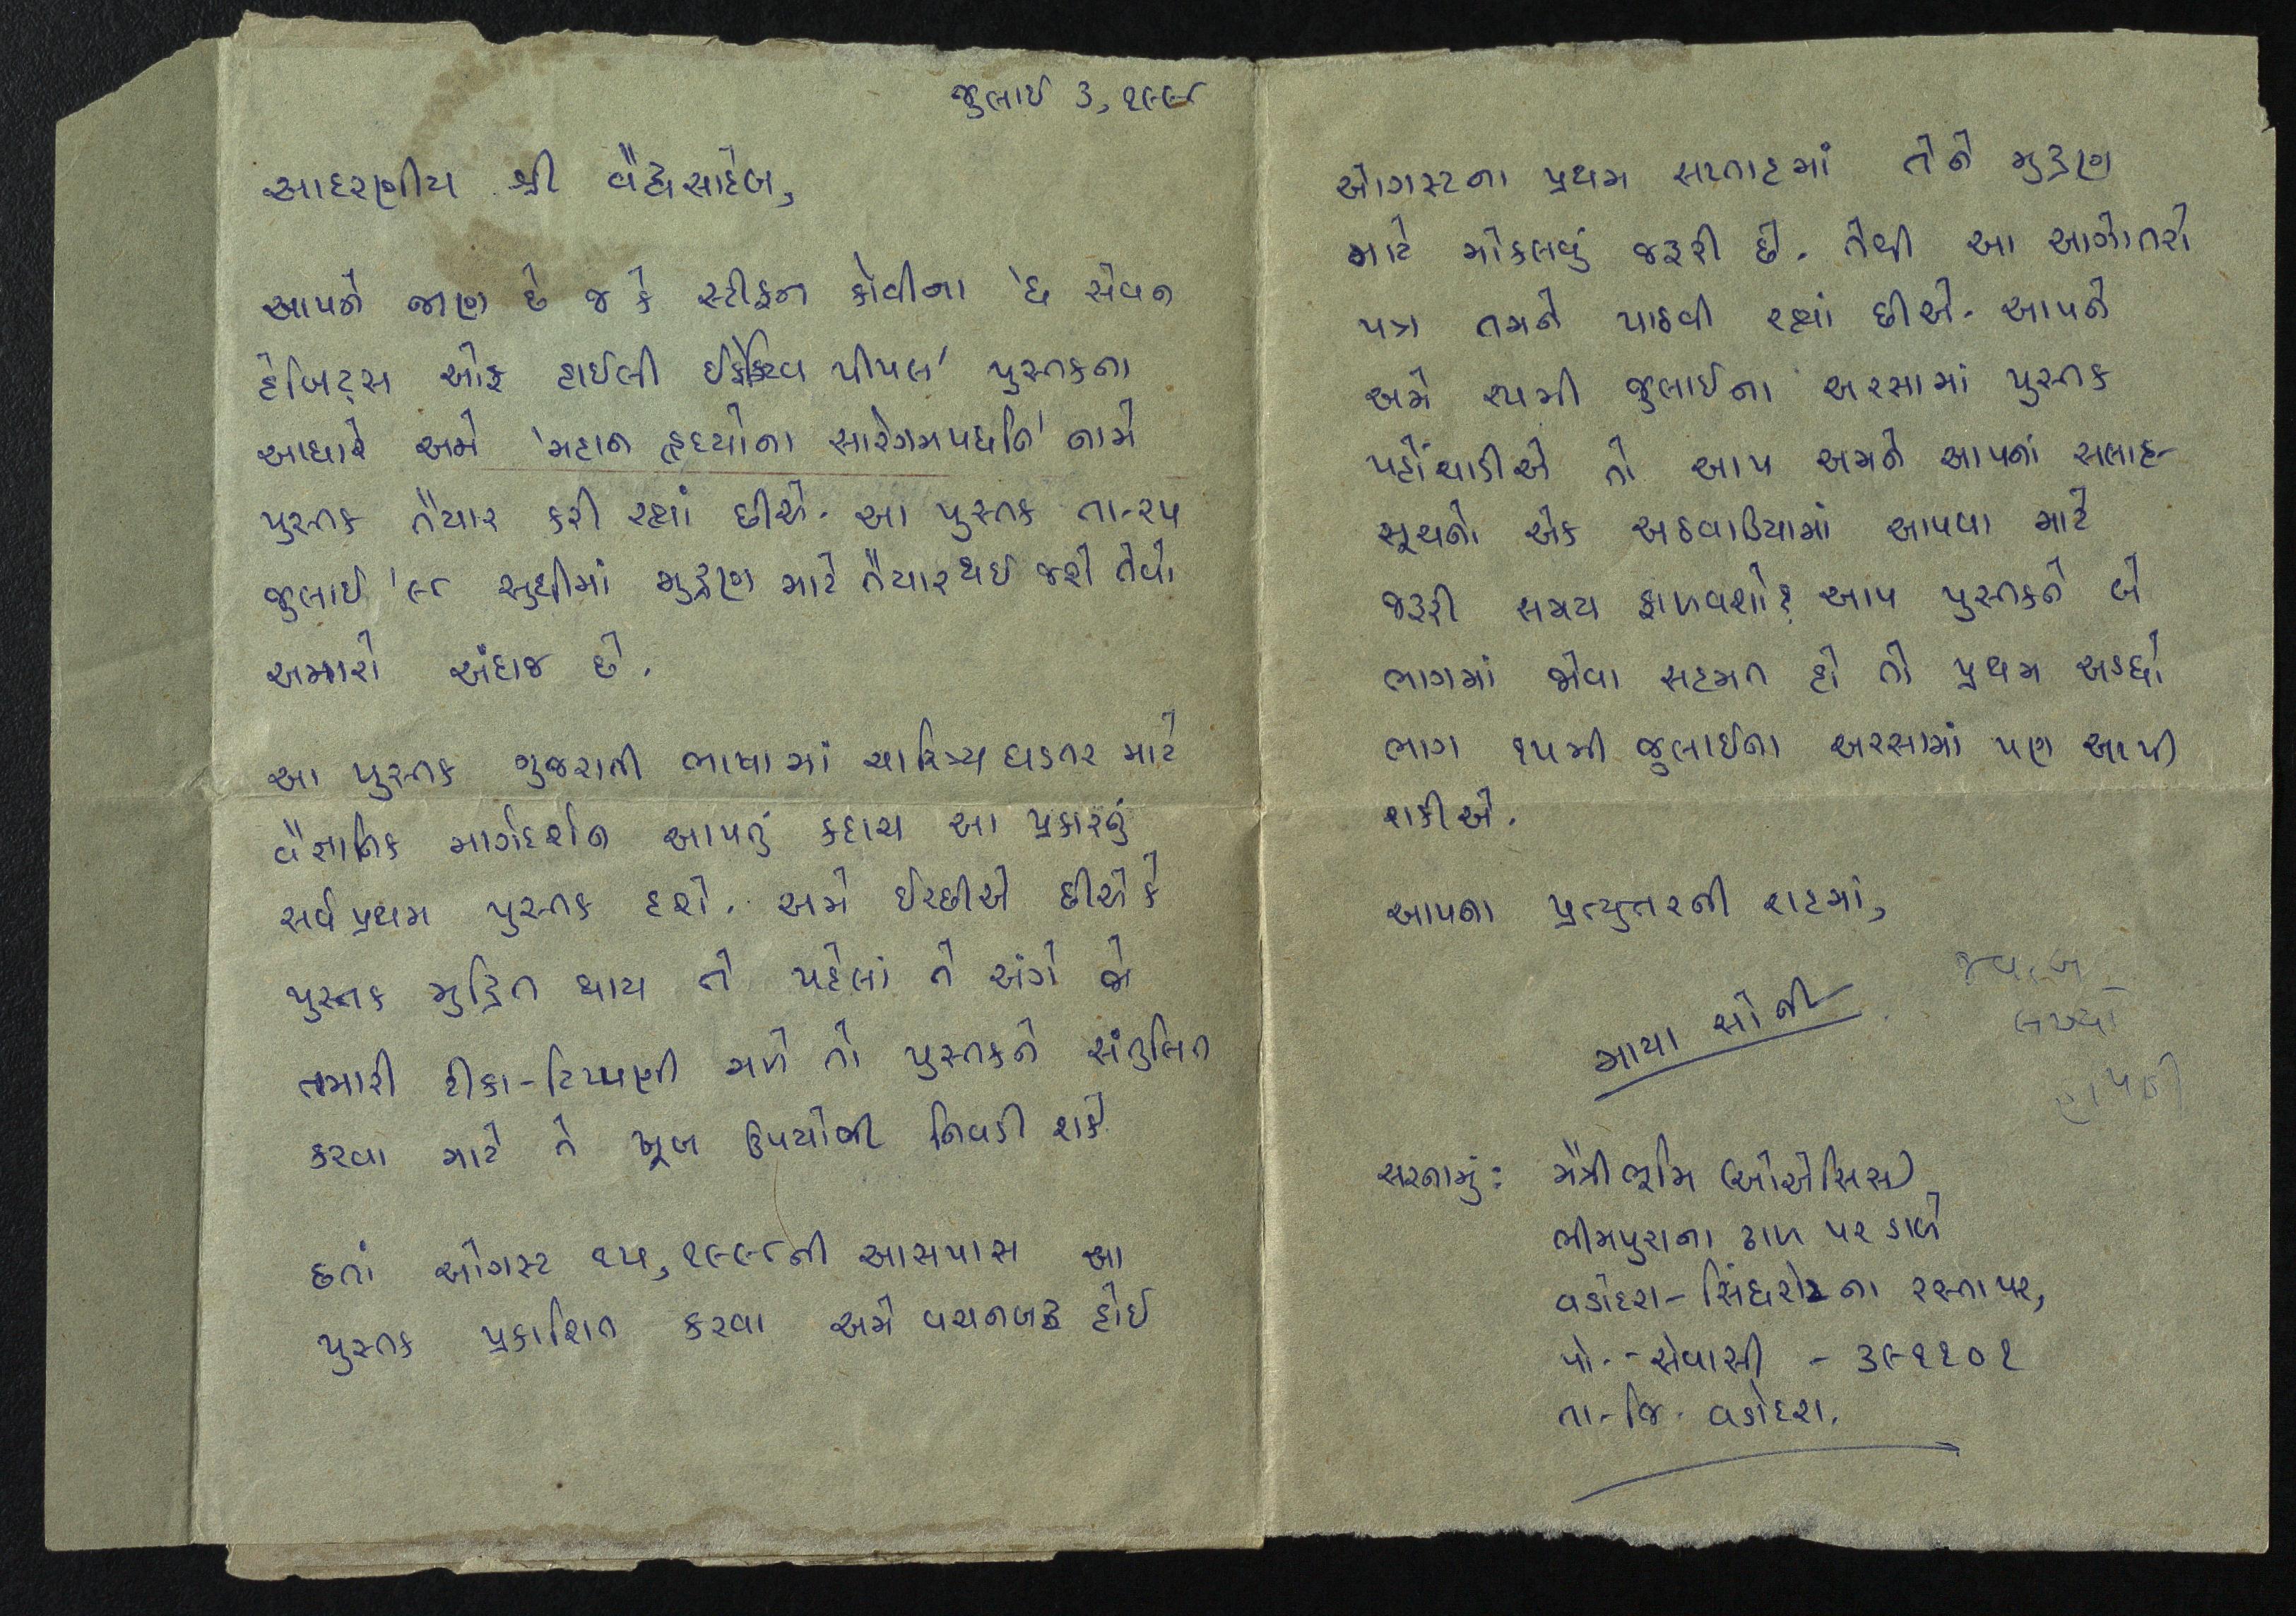 જુલાઈ ૩, ૧૯૯૮
આદરણીય શ્રી વૈદ્યસાહેબ,
આપને જાણ છે જ કે સ્ટીફન કોવીના 'ધ સેવન
હેબિટ્સ ઓફ હાઈલી ઈફેક્ટિવ પીપલ' પુસ્તકના
આધારે અમે 'મહાન હૃદયોના સારેગમપધનિ' નામે
પુસ્તક તૈયાર કરી રહ્યાં છીએ. આ પુસ્તક તા-૨૫
જુલાઈ '૯૮ સુધીમાં મુદ્રણ માટે તૈયાર થઈ જશે તેવો
અમારો અંદાજ છે.
આ પુસ્તક ગુજરાતી ભાષામાં ચારિત્ર્ય ઘડતર માટે
વૈજ્ઞાનિક માર્ગદર્શન આપતું કદાચ આ પ્રકારનું
સર્વ પ્રથમ પુસ્તક હશે. અમે ઈચ્છીએ છીએ કે
પુસ્તક મુદ્રિત થાય તે પહેલાં તે અંગે જો
તમારી ટીકા-ટિપ્પણી મળે તો પુસ્તકને સંતુલિત
કરવા માટે તે ખૂબ ઉપયોગી નિવડી શકે.
છતાં ઓગસ્ટ ૧૫, ૧૯૯૮ની આસપાસ આ
પુસ્તક પ્રકાશિત કરવા અમે વચનબદ્ધ હોઈ
ઓગસ્ટના પ્રથમ સપ્તાહમાં તેને મુદ્રણ
માટે મોકલવું જરૂરી છે. તેથી આ આગોતરો
પત્ર તમને પાઠવી રહ્યાં છીએ. આપને
અમે ૨૫મી જુલાઈના અરસામાં પુસ્તક
પહોંચાડીએ તો આપ અમને આપનાં સલાહ-
સૂચનો એક અઠવાડિયામાં આપવા માટે
જરૂરી સમય ફાળવશો? આપ પુસ્તકને બે
ભાગમાં જોવા સહમત હો તો પ્રથમ અડધો
ભાગ ૧૫મી જુલાઈના અરસામાં પણ આપી
શકીએ.
આપના પ્રત્યુત્તરની રાહમાં,
જવાબ
લખ્યો
માયા સોની
સરનામું: મૈત્રીભૂમિ (ઓએસિસ)
ભીમપુરાના ઢાળ પર ડાબે
વડોદરા-સિંધરોટ ના રસ્તા પર,
પો.-સેવાસી - ૩૯૧૧૦૧
તા-જિ. વડોદરા.